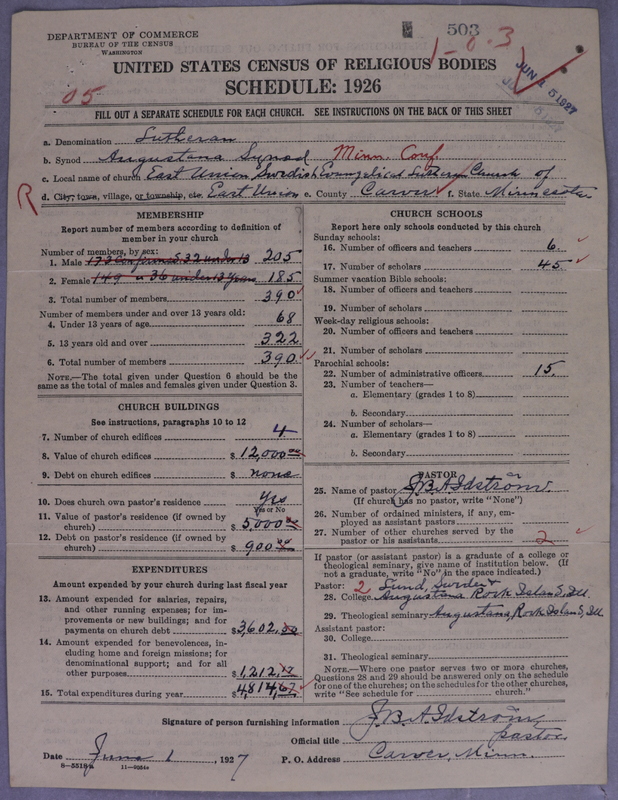 DEPARTMENT OF COMMERCE
BUREAU OF THE CENSUS
WASHINGTON
503
1-0.3
JUN 1 5 1927
UNITED STATES CENSUS OF RELIGIOUS BODIES
SCHEDULE: 1926
05
FILL OUT A SEPARATE SCHEDULE FOR EACH CHURCH. SEE INSTRUCTIONS ON THE BACK OF THIS SHEET
a. Denomination Lutheran
b. Synod Augustana Synod Minn. Conf.
c. Local name of church East Union Swedish Evangelical Lutheran Church of
R d. City, town, village, or township, etc. East Union e. County Carver f. State Minnesota
MEMBERSHIP
Report number of members according to definition of
member in your church
Number of members, by sex:
1. Male 173 Confirmed 32 under 13 205
2. Female 149 " 36 under 13 years 185
3. Total number of members 390
Number of members under and over 13 years old:
4. Under 13 years of age 68
5. 13 years old and over 322
6. Total number of members 390
NOTE.—The total given under Question 6 should be the
same as the total of males and females given under Question 3.
CHURCH BUILDINGS
See instructions, paragraphs 10 to 12
7. Number of church edifices 4
8. Value of church edifices $12,000
9. Debt on church edifices $ none
10. Does church own pastor's residence Yes
Yes or No
11. Value of pastor's residence (if owned by
church) $5000
12. Debt on pastor's residence (if owned by
church) $900
EXPENDITURES
Amount expended by your church during last fiscal year
13. Amount expended for salaries, repairs,
and other running expenses; for im-
provements or new buildings; and for
payments on church debt $3602.
14. Amount expended for benevolences, in-
cluding home and foreign missions; for
denominational support; and for all
other purposes $1,212.
15. Total expenditures during year $4,814
CHURCH SCHOOLS
Report here only schools conducted by this church
Sunday schools:
16. Number of officers and teachers 6
17. Number of scholars 45
Summer vacation Bible schools:
18. Number of officers and teachers
19. Number of scholars
Week-day religious schools:
20. Number of officers and teachers
21. Number of scholars
Parochial schools:
22. Number of administrative officers 15.
23. Number of teachers—
a. Elementary (grades 1 to 8)
b. Secondary
24. Number of scholars—
a. Elementary (grades 1 to 8)
b. Secondary
PASTOR
25. Name of pastor J. B. A. Idström
(If church has no pastor, write "None")
26. Number of ordained ministers, if any, em-
ployed as assistant pastors
27. Number of other churches served by the
pastor or his assistants 2
If pastor (or assistant pastor) is a graduate of a college or
theological seminary, give name of institution below. (If
not a graduate, write "No" in the space indicated.)
Pastor: 2 Lund, Sweden &
28. College Augustana Rock Island, Ill.
29. Theological seminary Augustana, Rock Island, Ill
Assistant pastor:
30. College
31. Theological seminary
NOTE.—Where one pastor serves two or more churches,
Questions 28 and 29 should be answered only on the schedule
for one of the churches; on the schedules for the other churches,
write "See schedule for church."
Signature of person furnishing information J. B. A. Idström
Official title pastor.
Date June 1, 1927 P. O. Address Carver, Minn.